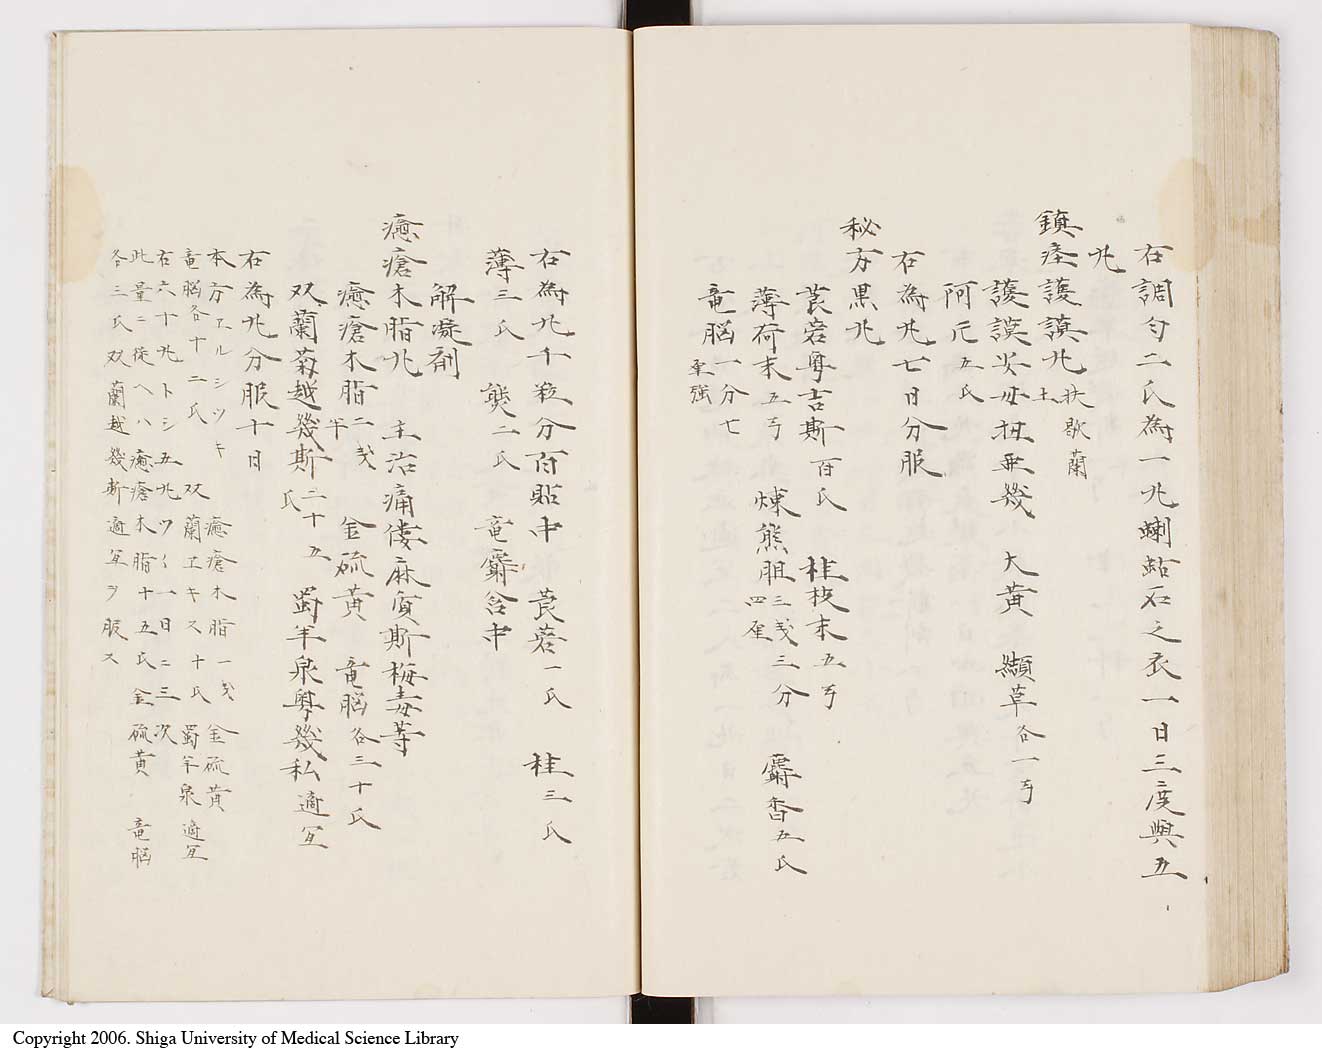 右調匀二氏為一丸蝲蛄石之衣一日三度與五
丸
鎮痙護謨丸 扶歇蘭土
護謨 亜幾 大黄 纈草各一
阿片五氏
右為丸七日分服
秘方黒丸
莨菪粤吉斯百氏 桂枝末五
薄荷末五 煉熊胆三 三分四厘 麝香五氏
竜脳一分七厘強
右為丸千粒分百貼中 莨菪一氏 桂三氏
薄三氏 熊二氏 竜麝含中
解凝剤
癒瘡木脂丸 主治痛僂麻質斯梅毒等
癒瘡木脂二 半 金硫黄 竜脳各三十氏
双蘭菊越幾斯二十五氏 蜀羊泉粤幾私適宜
右為丸分服十日
本方ヱルシツキ 癒瘡木脂一 金硫黄
竜脳各十二氏 双蘭ヱキス十氏 蜀羊泉適宜
右六十丸トシ五丸ツヽ一日ニ三次
此量ニ従ヘハ癒瘡木脂十五氏金硫黄 竜脳
各三氏双蘭越幾斯適宜ヲ服ス
Copyright 2006. Shiga University of Medical Science Library